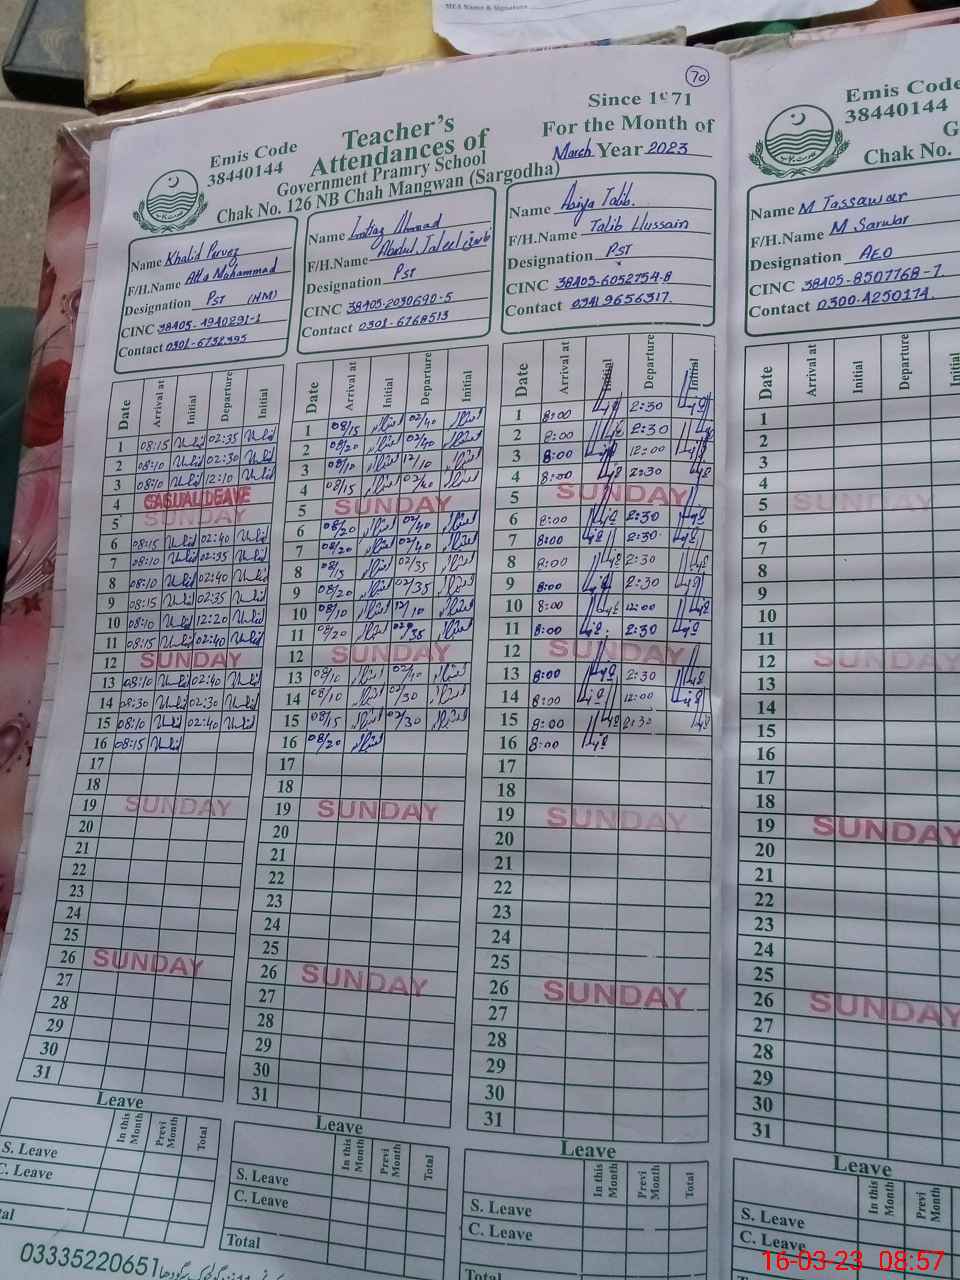 MEA Name & Signature
70
Since 1971
Emis Code
38440144
Teacher's
Attendances of
For the Month of
March Year 2023
Government Pramry School
Chak No. 126 NB Chah Mangwan (Sargodha)
Name Khalid Pervez
F/H.Name Atta Mohammad
Designation PST (HM)
CINC 38405-1940291-1
Contact 0301-6732395
Name Imtiaz Ahmad
F/H.Name Abdul Jaleel
Designation PST
CINC 38403-2030690-5
Contact 0301-6768513
Name Asiya Talib.
F/H.Name Talib Hussain
Designation PST
CINC 38405-6052754-8
Contact 03419656317.
Emis Code
38440144
Chak No.
Name M Tassawar
F/H.Name M Sarwar
Designation AEO
CINC 38405-8507768-7
Contact 0300-4250174.
Date Arrival at Initial Departure Initial
1 08:15 02:35
2 08:10 02:30
3 08:10 12:10
4 CASUAL LEAVE
5 SUNDAY
6 08:15 02:40
7 08:10 02:35
8 08:10 02:40
9 08:15 02:35
10 08:10 12:20
11 08:15 02:40
12 SUNDAY
13 08:10 02:40
14 08:30 02:30
15 08:10 02:40
16 08:15
17
18
19 SUNDAY
20
21
22
23
24
25
26 SUNDAY
27
28
29
30
31
Date Arrival at Initial Departure Initial
1 08/15 02/40
2 08/20 02/40
3 08/10 12/10
4 08/15 02/40
5 SUNDAY
6 08/20 02/40
7 08/20 02/40
8 08/15 02/35
9 08/20 02/35
10 08/10 12/10
11 08/20 02/35
12 SUNDAY
13 08/10 02/40
14 08/10 02/30
15 08/15 02/30
16 08/20
17
18
19 SUNDAY
20
21
22
23
24
25
26 SUNDAY
27
28
29
30
31
Date Arrival at Initial Departure Initial
1 8:00 2:30
2 8:00 2:30
3 8:00 12:00
4 8:00 2:30
5 SUNDAY
6 8:00 2:30
7 8:00 2:30
8 8:00 2:30
9 8:00 2:30
10 8:00 12:00
11 8:00 2:30
12 SUNDAY
13 8:00 2:30
14 8:00 12:00
15 8:00 2:30
16 8:00
17
18
19 SUNDAY
20
21
22
23
24
25
26 SUNDAY
27
28
29
30
31
Date Arrival at Initial Departure Initial
1
2
3
4
5 SUNDAY
6
7
8
9
10
11
12 SUNDAY
13
14
15
16
17
18
19 SUNDAY
20
21
22
23
24
25
26 SUNDAY
27
28
29
30
31
Leave
In this Month Previ Month Total
S. Leave
C. Leave
Leave
In this Month Previ Month Total
S. Leave
C. Leave
Total
Leave
In this Month Previ Month Total
S. Leave
C. Leave
Leave
In this Month Previ Month
S. Leave
C. Leave
Total
03335220651
16-03-23 08:57